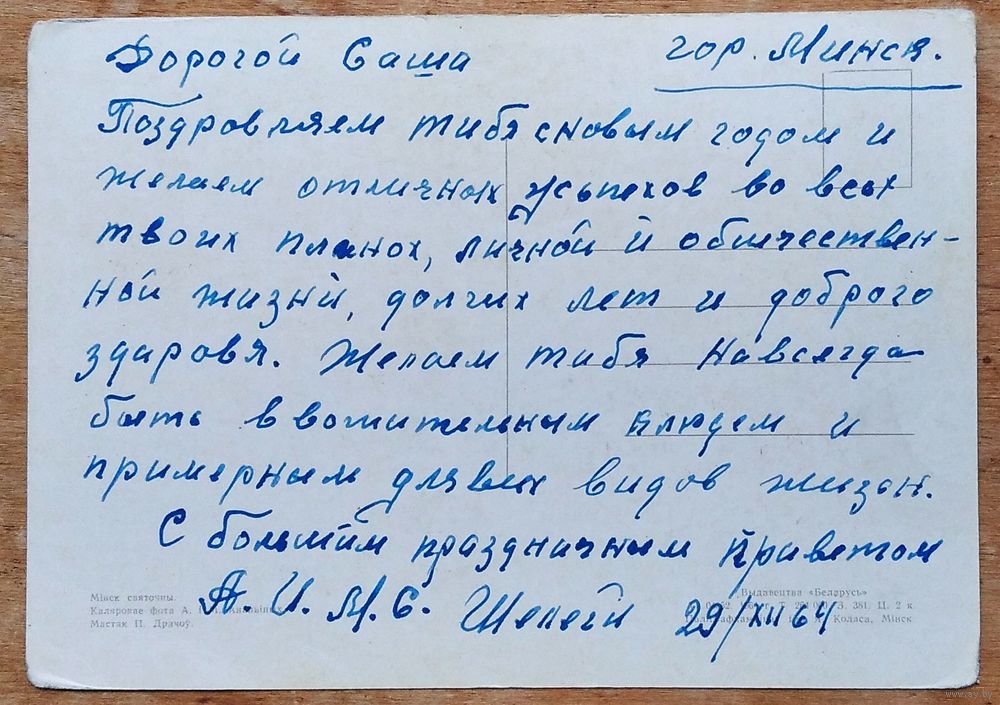 Дорогой Саша гор. Минск.
Поздровляем тибя сновым годом и
желаем отличных усьпехов во всех
твоих планох, личной и обшчествен-
ной жизни, долгих лет и доброго
здаровя. Желаем тибя навсегда
быть в вниительным клюдем и
примерным длявсех видов жизн.
С большим праздничным приветом
А. И. М. С. Шепеги 29/XII 64
Мінск святочны.
Каляровае фота А.
Мастак П. Драчоў.
Выдавецтва «Беларусь»
З. 381. Ц. 2 к.
Коласа, Мінск
www.ay.by